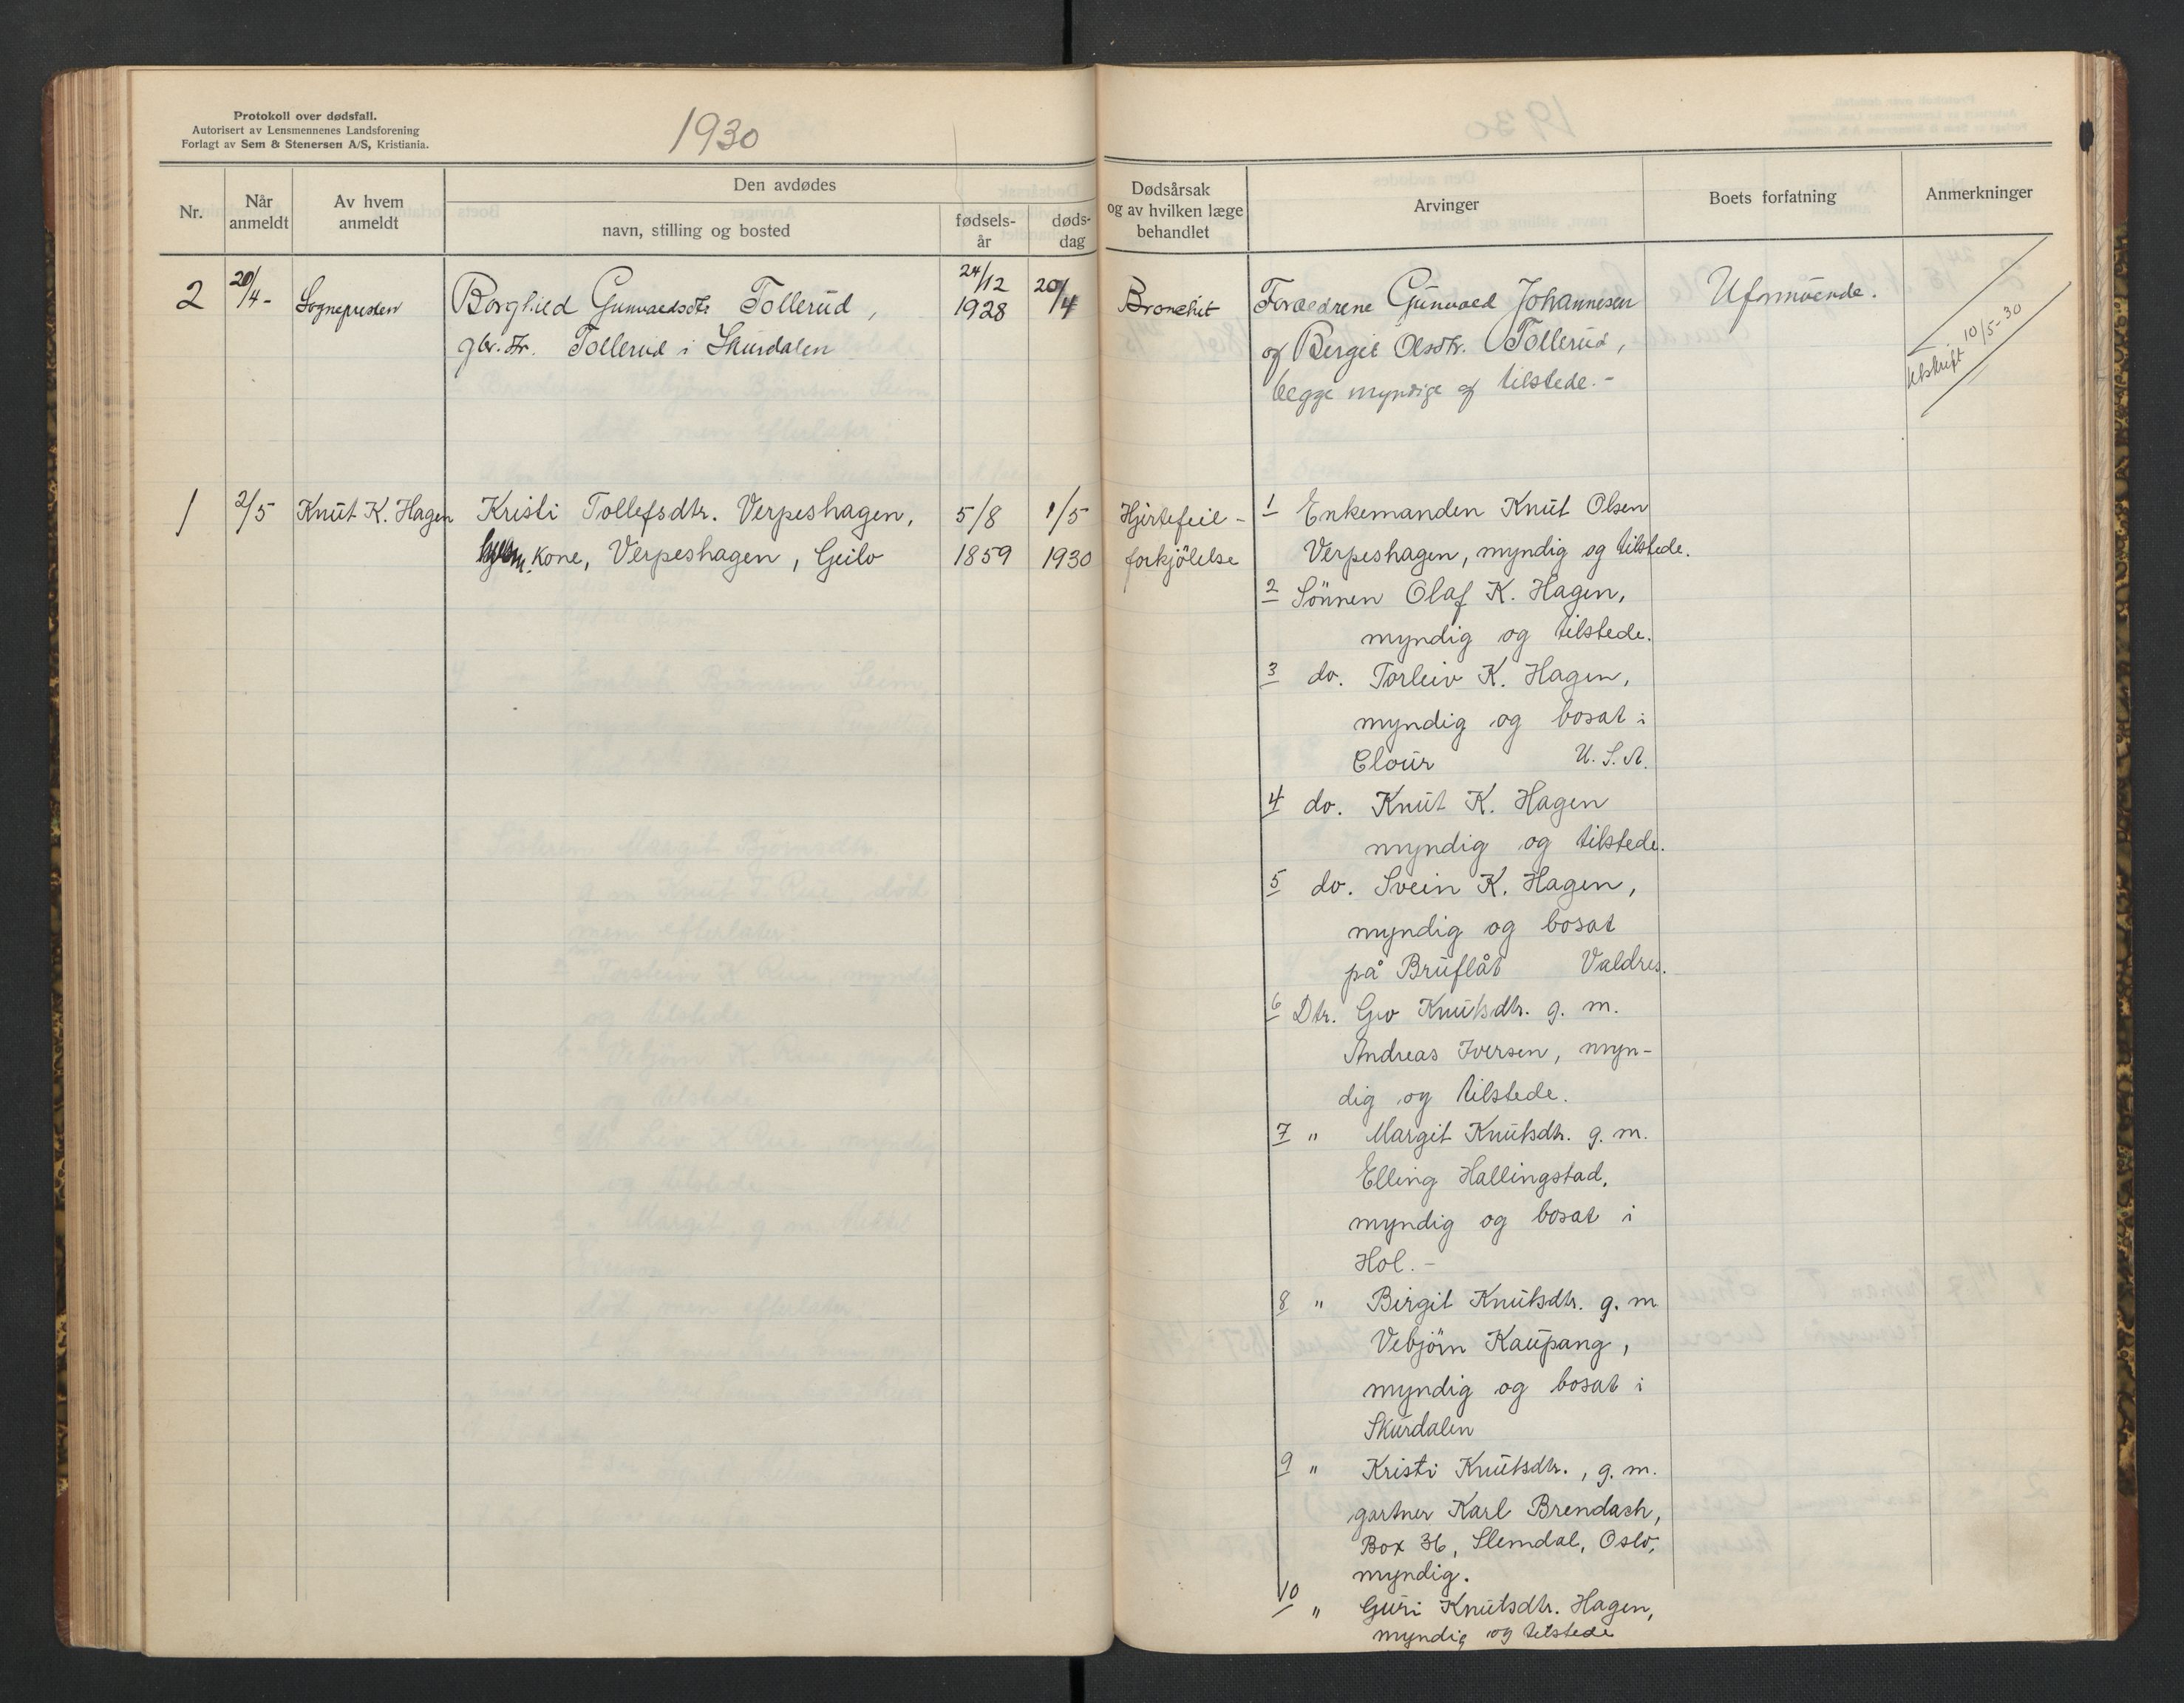 Protokoll over dødsfall.
Autorisert av Lensmennenes Landsforening
Forlagt av Sem & Stenersen A/S, Kristiania.
1930
Nr.
Når anmeldt
Av hvem anmeldt
Den avdødes
navn, stilling og bosted
fødsels-år
døds-dag
Dødsårsak og av hvilken læge behandlet
Arvinger
Boets forfatning
Anmerkninger
2
20/4-
Sognepresten
Borghild Gunvaldsdtr Tollerud,
gbr. dtr. Tollerud i Skurdalen
24/12
1928
20/4
Bronchit
Forældrene Gunvald Johannesen
og Bergit Olsdtr. Tollerud,
begge myndige og tilstede.-
Uformuende.
Utskrift 10/5-30
1
2/5
Knut K. Hagen
Kristi Tollefsdtr. Verpeshagen,
kone, Verpeshagen, Geilo
5/8
1859
1/5
1930
Hjertefeil-
forkjölelse
1 Enkemanden Knut Olsen
Verpeshagen, myndig og tilstede.
2 Sönnen Olaf K. Hagen,
myndig og tilstede.
3 do. Torleiv K. Hagen,
myndig og bosat i
U.S.A.
4 do. Knut K. Hagen
myndig og tilstede.
5 do. Svein K. Hagen,
myndig og bosat
på Bruflåt Valdres.
6 Dtr. Gro Knutsdtr. g. m.
Andreas Iversen, myn-
dig og tilstede.
7 " Margit Knutsdtr. g. m.
Elling Hallingstad,
myndig og bosat i
Hol.-
8 " Birgit Knutsdtr. g. m
Vebjörn Kaupang,
myndig og bosat i
Skurdalen
9 " Kristi Knutsdtr., g. m.
gartner Karl Brendash,
Box 36, Slemdal, Oslo,
myndig.
10 " Guri Knutsdtr. Hagen,
myndig og tilstede